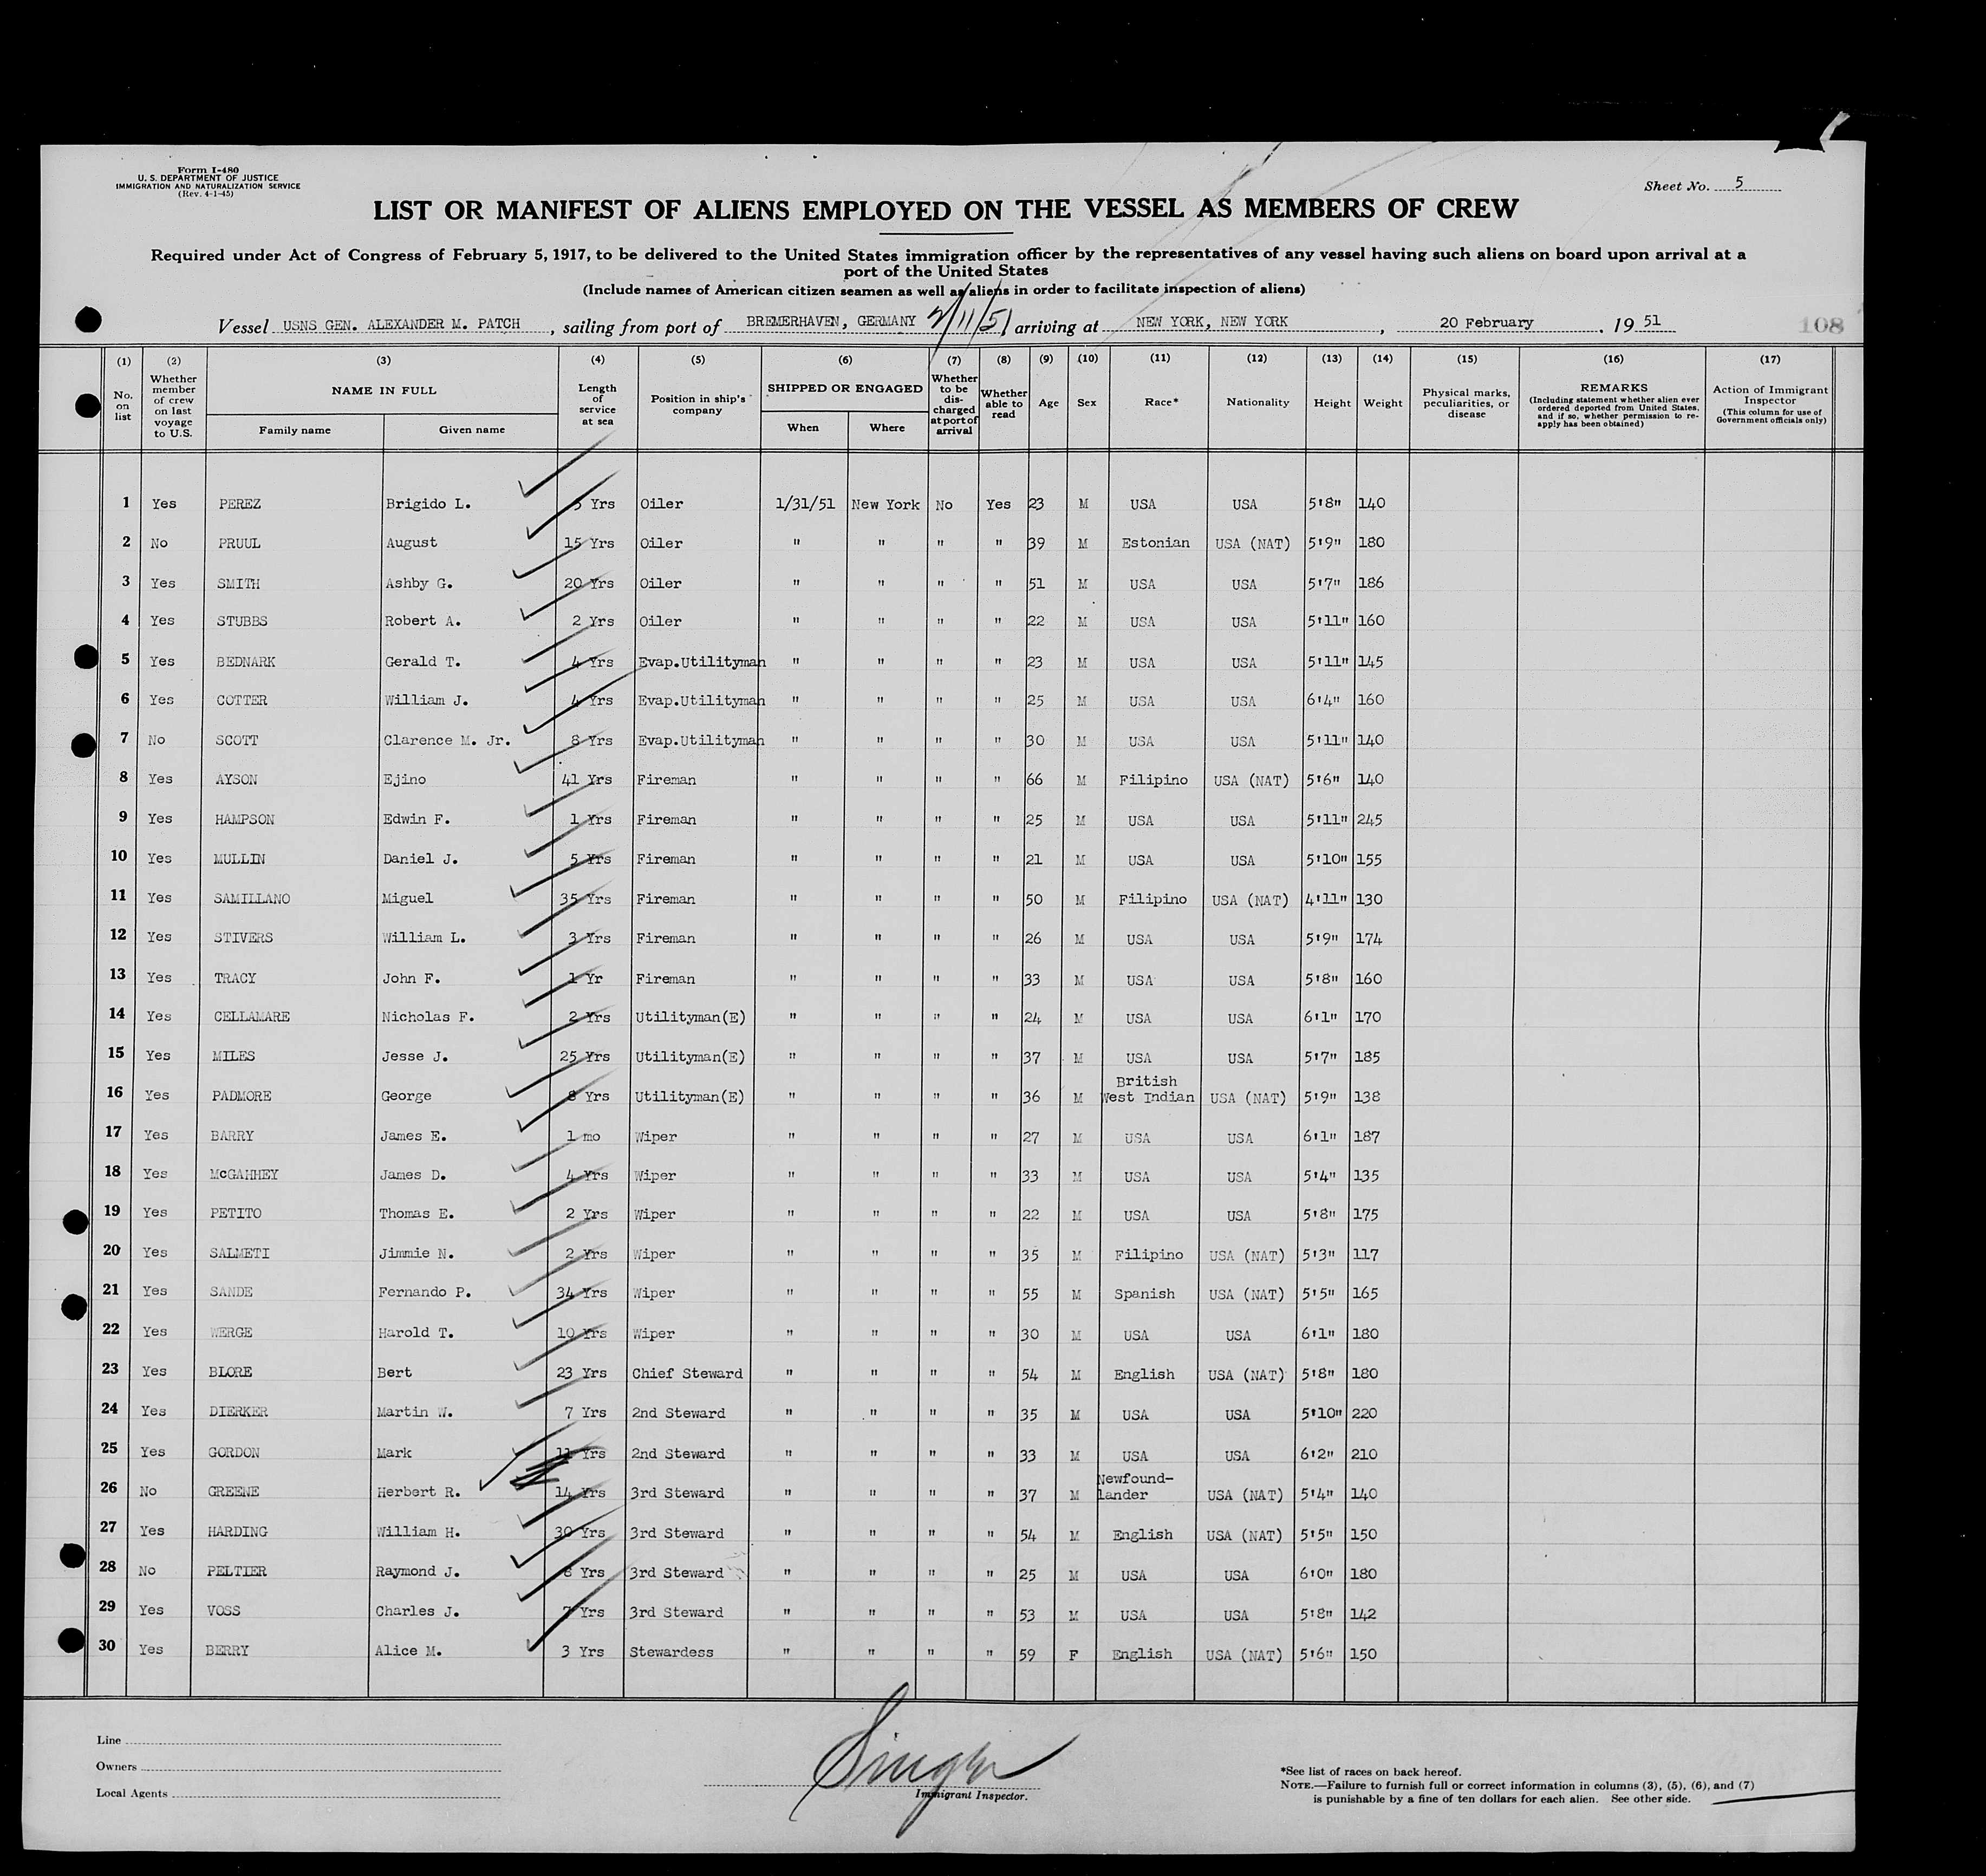 Form I-480
U. S. DEPARTMENT OF JUSTICE
IMMIGRATION AND NATURALIZATION SERVICE
(Rev. 4-1-45)
Sheet No. 5
LIST OR MANIFEST OF ALIENS EMPLOYED ON THE VESSEL AS MEMBERS OF CREW
Required under Act of Congress of February 5, 1917, to be delivered to the United States immigration officer by the representatives of any vessel having such aliens on board upon arrival at a
port of the United States
(Include names of American citizen seamen as well as aliens in order to facilitate inspection of aliens)
Vessel USNS GEN. ALEXANDER M. PATCH , sailing from port of BREMERHAVEN, GERMANY 2/11/51 arriving at NEW YORK, NEW YORK , 20 February , 19 51 108
(1) (2) (3) (4) (5) (6) (7) (8) (9) (10) (11) (12) (13) (14) (15) (16) (17)
No. on list Whether member of crew on last voyage to U.S. NAME IN FULL Family name Given name Length of service at sea Position in ship's company SHIPPED OR ENGAGED When Where Whether to be discharged at port of arrival Whether able to read Age Sex Race* Nationality Height Weight Physical marks, peculiarities, or disease REMARKS (Including statement whether alien ever ordered deported from United States, and if so, whether permission to re-apply has been obtained) Action of Immigrant Inspector (This column for use of Government officials only)
1 Yes PEREZ Brigido L. 5 Yrs Oiler 1/31/51 New York No Yes 23 M USA USA 5'8" 140
2 No PRUUL August 15 Yrs Oiler " " " " 39 M Estonian USA (NAT) 5'9" 180
3 Yes SMITH Ashby G. 20 Yrs Oiler " " " " 51 M USA USA 5'7" 186
4 Yes STUBBS Robert A. 2 Yrs Oiler " " " " 22 M USA USA 5'11" 160
5 Yes BEDNARK Gerald T. 4 Yrs Evap.Utilityman " " " " 23 M USA USA 5'11" 145
6 Yes COTTER William J. 4 Yrs Evap.Utilityman " " " " 25 M USA USA 6'4" 160
7 No SCOTT Clarence M. Jr. 8 Yrs Evap.Utilityman " " " " 30 M USA USA 5'11" 140
8 Yes AYSON Ejino 41 Yrs Fireman " " " " 66 M Filipino USA (NAT) 5'6" 140
9 Yes HAMPSON Edwin F. 1 Yrs Fireman " " " " 25 M USA USA 5'11" 245
10 Yes MULLIN Daniel J. 5 Yrs Fireman " " " " 21 M USA USA 5'10" 155
11 Yes SAMILLANO Miguel 35 Yrs Fireman " " " " 50 M Filipino USA (NAT) 4'11" 130
12 Yes STIVERS William L. 3 Yrs Fireman " " " " 26 M USA USA 5'9" 174
13 Yes TRACY John F. 1 Yr Fireman " " " " 33 M USA USA 5'8" 160
14 Yes CELLAMARE Nicholas F. 2 Yrs Utilityman(E) " " " " 24 M USA USA 6'1" 170
15 Yes MILES Jesse J. 25 Yrs Utilityman(E) " " " " 37 M USA USA 5'7" 185
16 Yes PADMORE George 8 Yrs Utilityman(E) " " " " 36 M British West Indian USA (NAT) 5'9" 138
17 Yes BARRY James E. 1 mo Wiper " " " " 27 M USA USA 6'1" 187
18 Yes McGAHHEY James D. 4 Yrs Wiper " " " " 33 M USA USA 5'4" 135
19 Yes PETITO Thomas E. 2 Yrs Wiper " " " " 22 M USA USA 5'8" 175
20 Yes SALMETI Jimmie N. 2 Yrs Wiper " " " " 35 M Filipino USA (NAT) 5'3" 117
21 Yes SANDE Fernando P. 34 Yrs Wiper " " " " 55 M Spanish USA (NAT) 5'5" 165
22 Yes WERGE Harold T. 10 Yrs Wiper " " " " 30 M USA USA 6'1" 180
23 Yes BLORE Bert 23 Yrs Chief Steward " " " " 54 M English USA (NAT) 5'8" 180
24 Yes DIERKER Martin W. 7 Yrs 2nd Steward " " " " 35 M USA USA 5'10" 220
25 Yes GORDON Mark 11 Yrs 2nd Steward " " " " 33 M USA USA 6'2" 210
26 No GREENE Herbert R. 14 Yrs 3rd Steward " " " " 37 M Newfound-lander USA (NAT) 5'4" 140
27 Yes HARDING William H. 30 Yrs 3rd Steward " " " " 54 M English USA (NAT) 5'5" 150
28 No PELTIER Raymond J. Yrs 3rd Steward " " " " 25 M USA USA 6'0" 180
29 Yes VOSS Charles J. 7 Yrs 3rd Steward " " " " 53 M USA USA 5'8" 142
30 Yes BERRY Alice M. 3 Yrs Stewardess " " " " 59 F English USA (NAT) 5'6" 150
Line
Owners
Local Agents
Singer
Immigrant Inspector.
*See list of races on back hereof.
NOTE.—Failure to furnish full or correct information in columns (3), (5), (6), and (7)
is punishable by a fine of ten dollars for each alien. See other side.